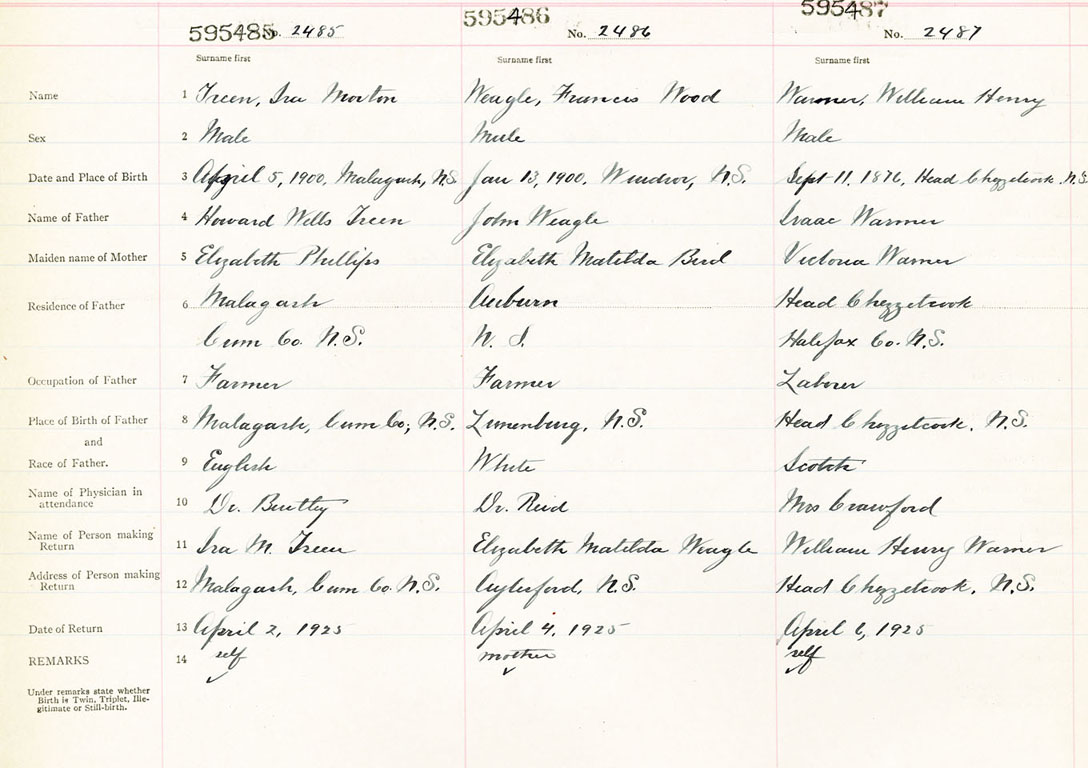 595485 No. 2485 595486 No. 2486 595487 No. 2487
Surname first Surname first Surname first
Name 1 Treen, Ira Morton Weagle, Francis Wood Warner, William Henry
Sex 2 Male Male Male
Date and Place of Birth 3 April 5, 1900, Malagash, N.S. Jan 13, 1900, Windsor, N.S. Sept 11, 1876, Head Chezzetcook, N.S.
Name of Father 4 Howard Wells Treen John Weagle Isaac Warner
Maiden name of Mother 5 Elizabeth Phillips Elizabeth Matilda Bird Victoria Warner
Residence of Father 6 Malagash Auburn Head Chezzetcook
Cum Co. N.S. N. S. Halifax Co. N.S.
Occupation of Father 7 Farmer Farmer Laborer
Place of Birth of Father 8 Malagash, Cum Co, N.S. Lunenburg, N.S. Head Chezzetcook, N.S.
and
Race of Father. 9 English White Scotch
Name of Physician in attendance 10 Dr. Dr. Reid Mrs Crawford
Name of Person making Return 11 Ira M. Treen Elizabeth Matilda Weagle William Henry Warner
Address of Person making Return 12 Malagash, Cum Co. N.S. Aylesford, N.S. Head Chezzetcook, N.S.
Date of Return 13 April 2, 1925 April 4, 1925 April 6, 1925
REMARKS 14 self mother self
Under remarks state whether
Birth is Twin, Triplet, Ille-
gitimate or Still-birth.